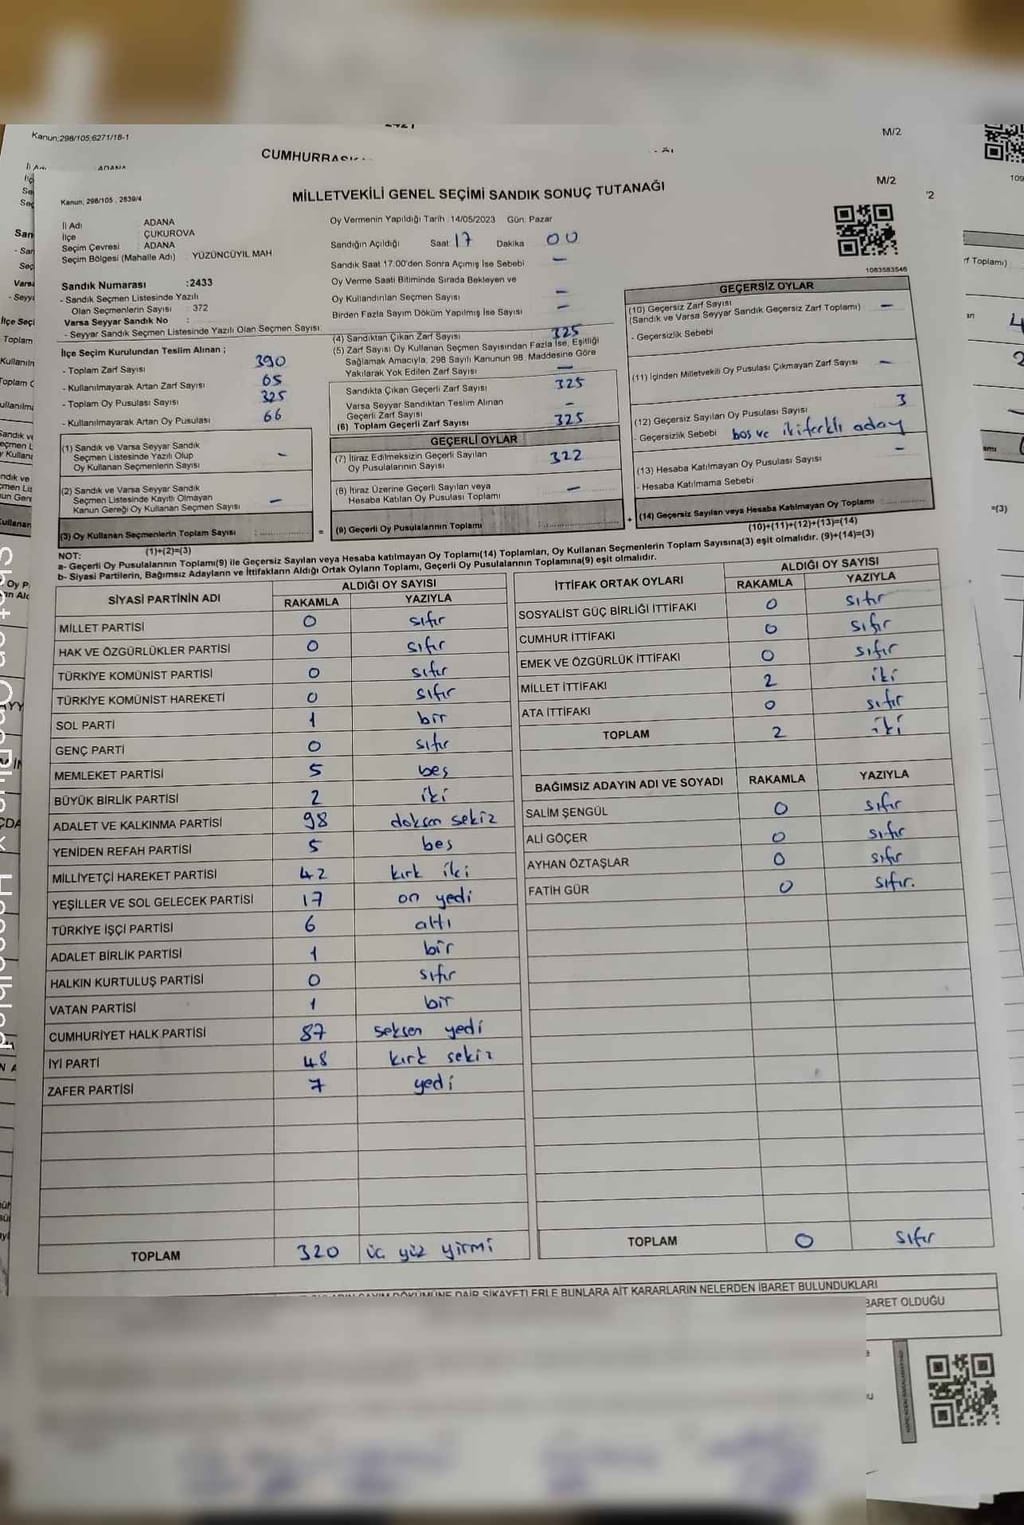 Kanun:298/105;6271/18-1
M/2
Kanun, 298/105 , 2839/4
MİLLETVEKİLİ GENEL SEÇİMİ SANDIK SONUÇ TUTANAĞI
M/2
İl Adı ADANA
İlçe ÇUKUROVA
Seçim Çevresi ADANA
Seçim Bölgesi (Mahalle Adı) YÜZÜNCÜYIL MAH
Oy Vermenin Yapıldığı Tarih :14/05/2023 Gün: Pazar
Sandığın Açıldığı Saat 17 Dakika 00
Sandık Saat 17.00'den Sonra Açımış İse Sebebi –
Oy Verme Saati Bitiminde Sırada Bekleyen ve
Oy Kullandırılan Seçmen Sayısı –
Birden Fazla Sayım Döküm Yapılmış İse Sayısı –
1083583546
Sandık Numarası :2433
- Sandık Seçmen Listesinde Yazılı
Olan Seçmenlerin Sayısı 372
Varsa Seyyar Sandık No :
- Seyyar Sandık Seçmen Listesinde Yazılı Olan Seçmen Sayısı:
İlçe Seçim Kurulundan Teslim Alınan ;
- Toplam Zarf Sayısı 390
- Kullanılmayarak Artan Zarf Sayısı 65
- Toplam Oy Pusulası Sayısı 325
- Kullanılmayarak Artan Oy Pusulası 66
(1) Sandık ve Varsa Seyyar Sandık
Seçmen Listesinde Yazılı Olup
Oy Kullanan Seçmenlerin Sayısı –
(2) Sandık ve Varsa Seyyar Sandık
Seçmen Listesinde Kayıtlı Olmayan
Kanun Gereği Oy Kullanan Seçmen Sayısı –
(3) Oy Kullanan Seçmenlerin Toplam Sayısı
(1)+(2)=(3)
(4) Sandıktan Çıkan Zarf Sayısı 325
(5) Zarf Sayısı Oy Kullanan Seçmen Sayısından Fazla İse, Eşitliği
Sağlamak Amacıyla, 298 Sayılı Kanunun 98. Maddesine Göre
Yakılarak Yok Edilen Zarf Sayısı –
Sandıkta Çıkan Geçerli Zarf Sayısı 325
Varsa Seyyar Sandıktan Teslim Alınan
Geçerli Zarf Sayısı –
(6) Toplam Geçerli Zarf Sayısı 325
GEÇERLİ OYLAR
(7) İtiraz Edilmeksizin Geçerli Sayılan
Oy Pusulalarının Sayısı 322
(8) İtiraz Üzerine Geçerli Sayılan veya
Hesaba Katılan Oy Pusulası Toplamı –
= (9) Geçerli Oy Pusulalarının Toplamı
GEÇERSİZ OYLAR
(10) Geçersiz Zarf Sayısı
(Sandık ve Varsa Seyyar Sandık Geçersiz Zarf Toplamı) –
- Geçersizlik Sebebi
(11) İçinden Milletvekili Oy Pusulası Çıkmayan Zarf Sayısı –
(12) Geçersiz Sayılan Oy Pusulası Sayısı 3
- Geçersizlik Sebebi boş ve iki farklı aday
(13) Hesaba Katılmayan Oy Pusulası Sayısı –
- Hesaba Katılmama Sebebi
+ (14) Geçersiz Sayılan veya Hesaba Katılmayan Oy Toplamı
(10)+(11)+(12)+(13)=(14)
NOT:
a- Geçerli Oy Pusulalarının Toplamı(9) ile Geçersiz Sayılan veya Hesaba katılmayan Oy Toplamı(14) Toplamları, Oy Kullanan Seçmenlerin Toplam Sayısına(3) eşit olmalıdır. (9)+(14)=(3)
b- Siyasi Partilerin, Bağımsız Adayların ve İttifakların Aldığı Ortak Oyların Toplamı, Geçerli Oy Pusulalarının Toplamına(9) eşit olmalıdır.
SİYASİ PARTİNİN ADI ALDIĞI OY SAYISI
RAKAMLA YAZIYLA
MİLLET PARTİSİ 0 sıfır
HAK VE ÖZGÜRLÜKLER PARTİSİ 0 sıfır
TÜRKİYE KOMÜNİST PARTİSİ 0 sıfır
TÜRKİYE KOMÜNİST HAREKETİ 0 sıfır
SOL PARTİ 1 bir
GENÇ PARTİ 0 sıfır
MEMLEKET PARTİSİ 5 beş
BÜYÜK BİRLİK PARTİSİ 2 iki
ADALET VE KALKINMA PARTİSİ 98 doksan sekiz
YENİDEN REFAH PARTİSİ 5 beş
MİLLİYETÇİ HAREKET PARTİSİ 42 kırk iki
YEŞİLLER VE SOL GELECEK PARTİSİ 17 on yedi
TÜRKİYE İŞÇİ PARTİSİ 6 altı
ADALET BİRLİK PARTİSİ 1 bir
HALKIN KURTULUŞ PARTİSİ 0 sıfır
VATAN PARTİSİ 1 bir
CUMHURİYET HALK PARTİSİ 87 seksen yedi
İYİ PARTİ 48 kırk sekiz
ZAFER PARTİSİ 7 yedi
TOPLAM 320 üç yüz yirmi
İTTİFAK ORTAK OYLARI ALDIĞI OY SAYISI
RAKAMLA YAZIYLA
SOSYALİST GÜÇ BİRLİĞİ İTTİFAKI 0 sıfır
CUMHUR İTTİFAKI 0 sıfır
EMEK VE ÖZGÜRLÜK İTTİFAKI 0 sıfır
MİLLET İTTİFAKI 2 iki
ATA İTTİFAKI 0 sıfır
TOPLAM 2 iki
BAĞIMSIZ ADAYIN ADI VE SOYADI RAKAMLA YAZIYLA
SALİM ŞENGÜL 0 sıfır
ALİ GÖÇER 0 sıfır
AYHAN ÖZTAŞLAR 0 sıfır
FATİH GÜR 0 sıfır.
TOPLAM 0 sıfır
DAİR ŞİKAYETLERLE BUNLARA AİT KARARLARIN NELERDEN İBARET BULUNDUKLARI
OLDUĞU